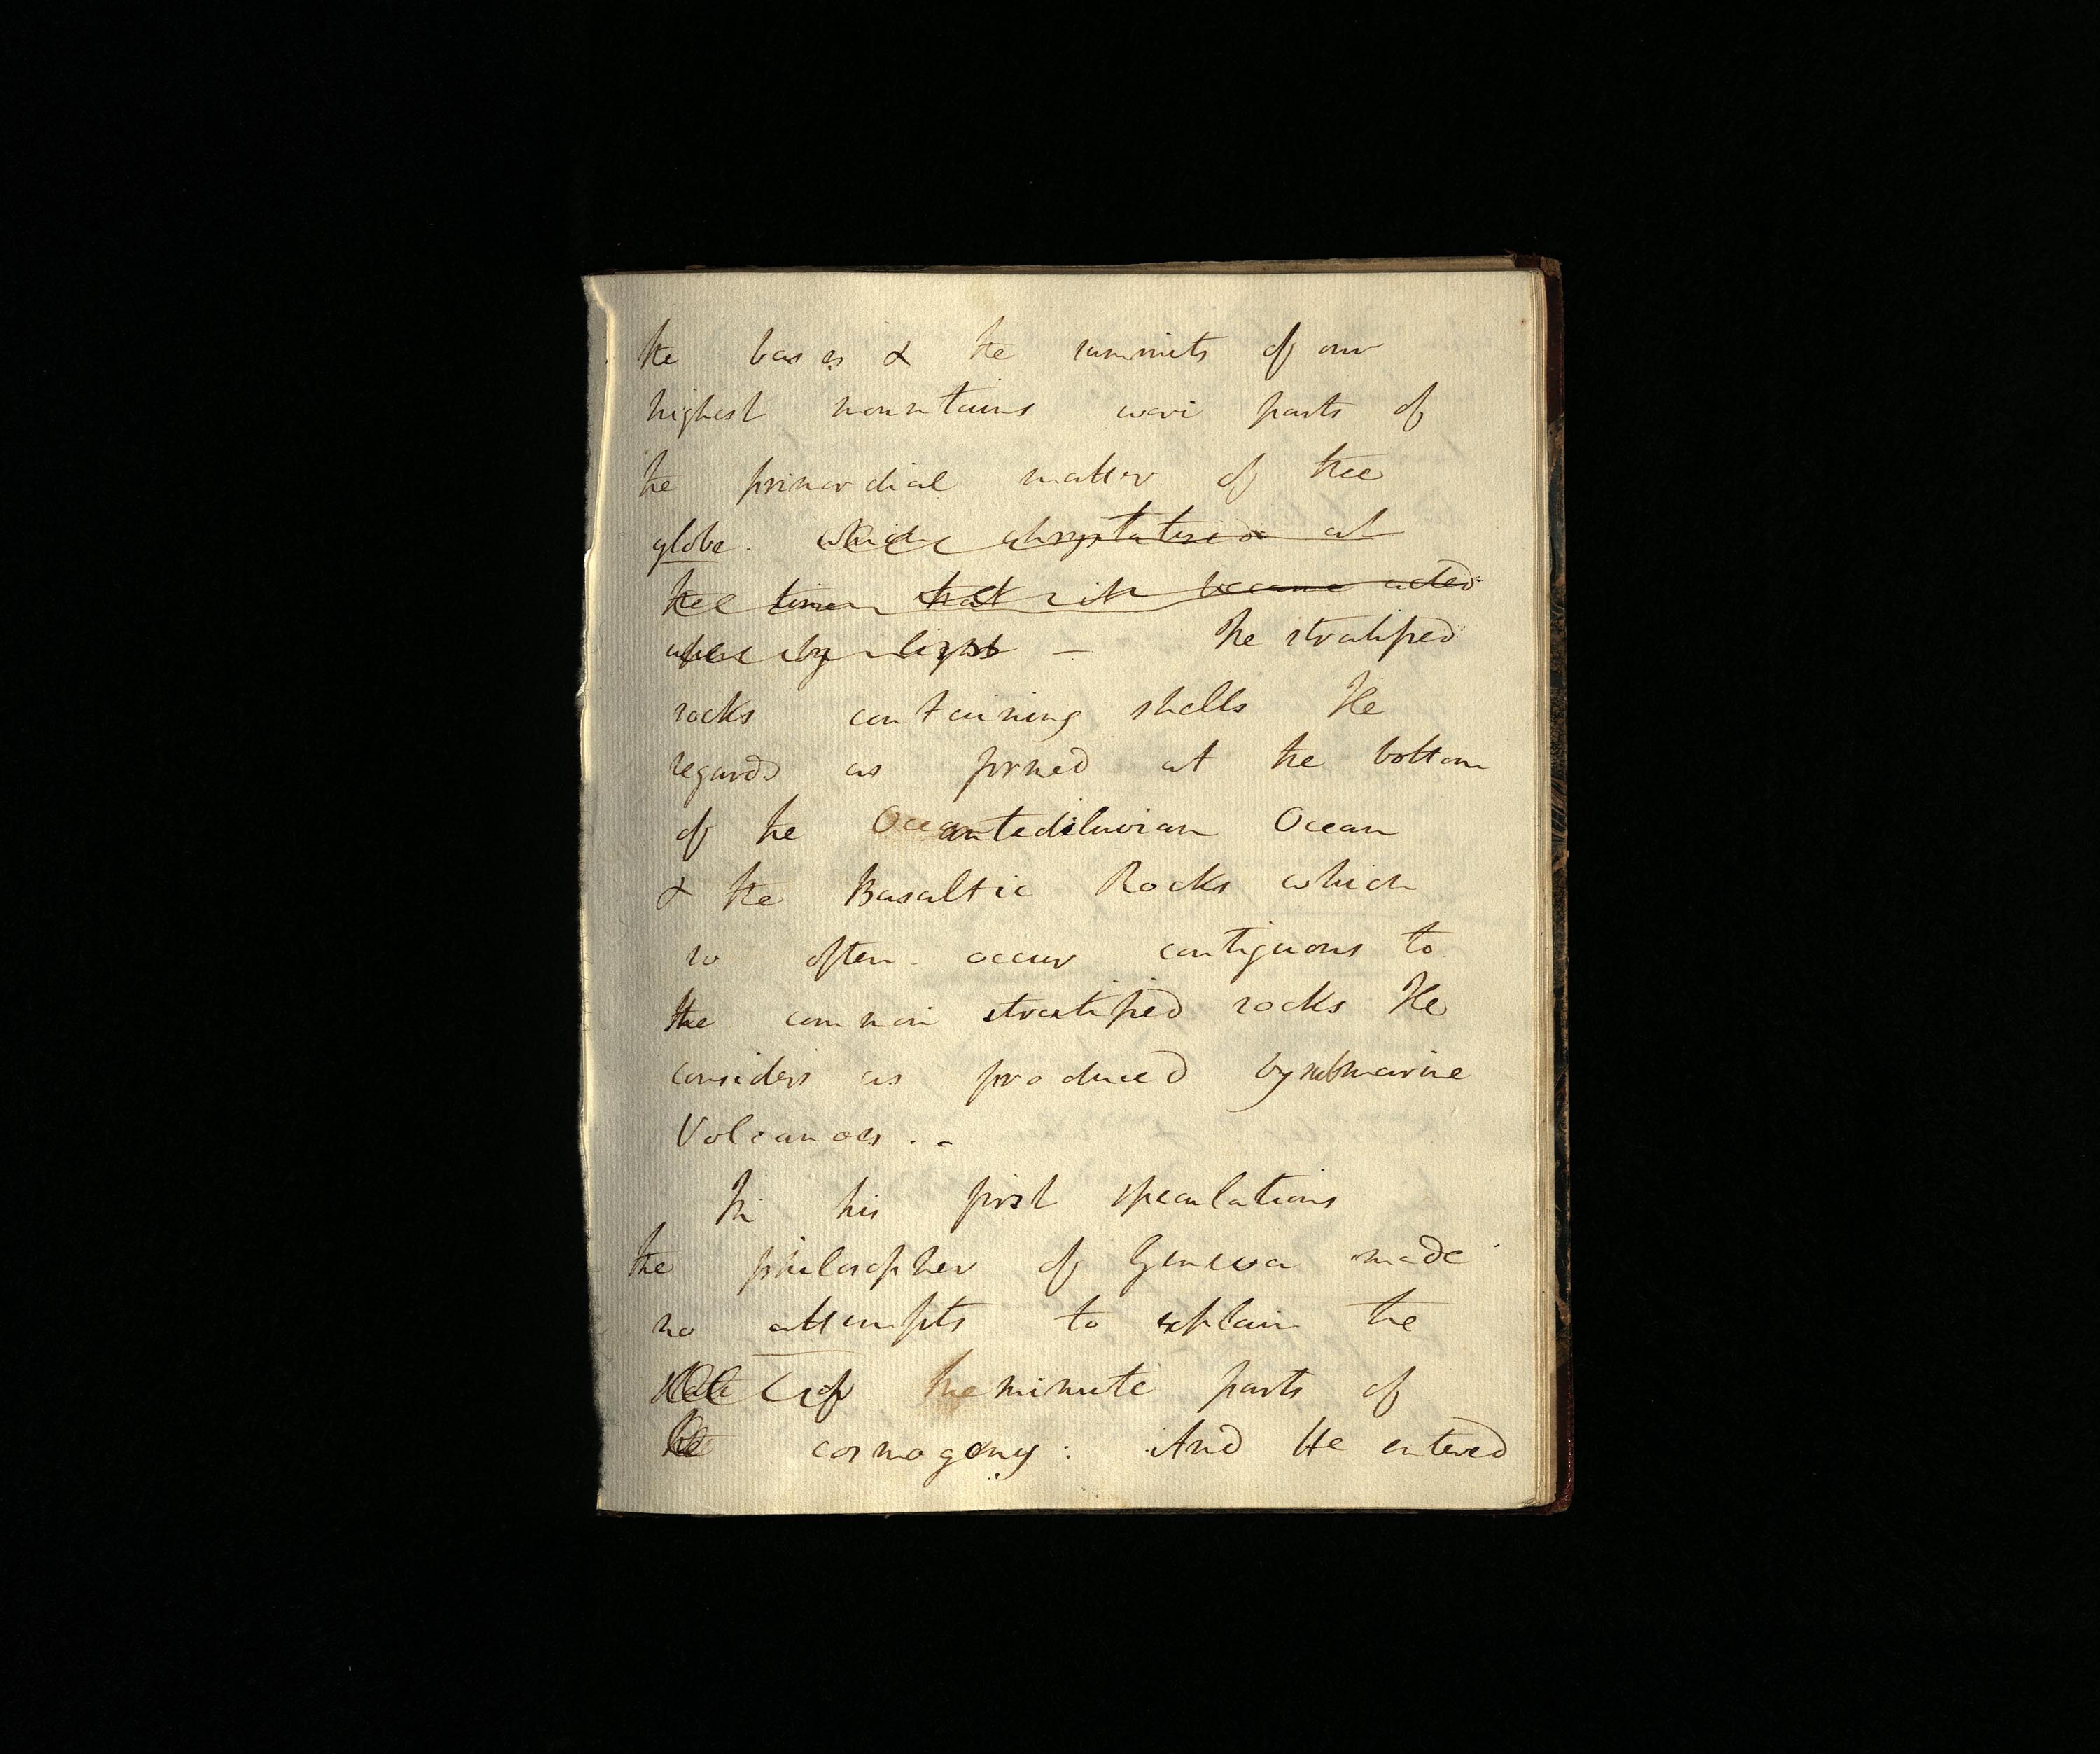 the bases & the summits of our
highest mountains were parts of
the primordial matter of the
globe. which chrystalised at
the time that it became acted
upon by light — The stratified
rocks containing shells He
regards as formed at the bottom
of the Oceantediluvian Ocean
& the Basaltic Rocks which
so often occur contiguous to
the common stratified rocks He
considers as produced by submarine
Volcanoes. -
In his first speculations
the philosopher of Geneva made
no attempts to explain the
of the minute parts of
the cosmogony: And He entered